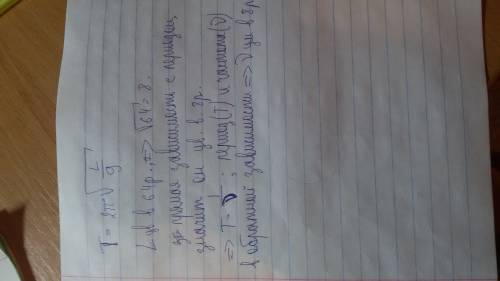 T = 2π√(L/g)
L ув в 64р., => √64 = 8.
прямая зависимость с периодом,
значит он ув. в 8р.
=> T = 1/ν ; период(T) и частота(ν)
в обратной зависимости => ν ум в 8р